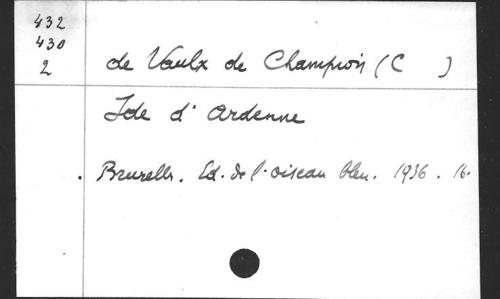 432
430
2
de Vaulx de Champion (C )
Ide d'Ardenne
Bruxelles. Ed. de l'oiseau bleu. 1936. 16.